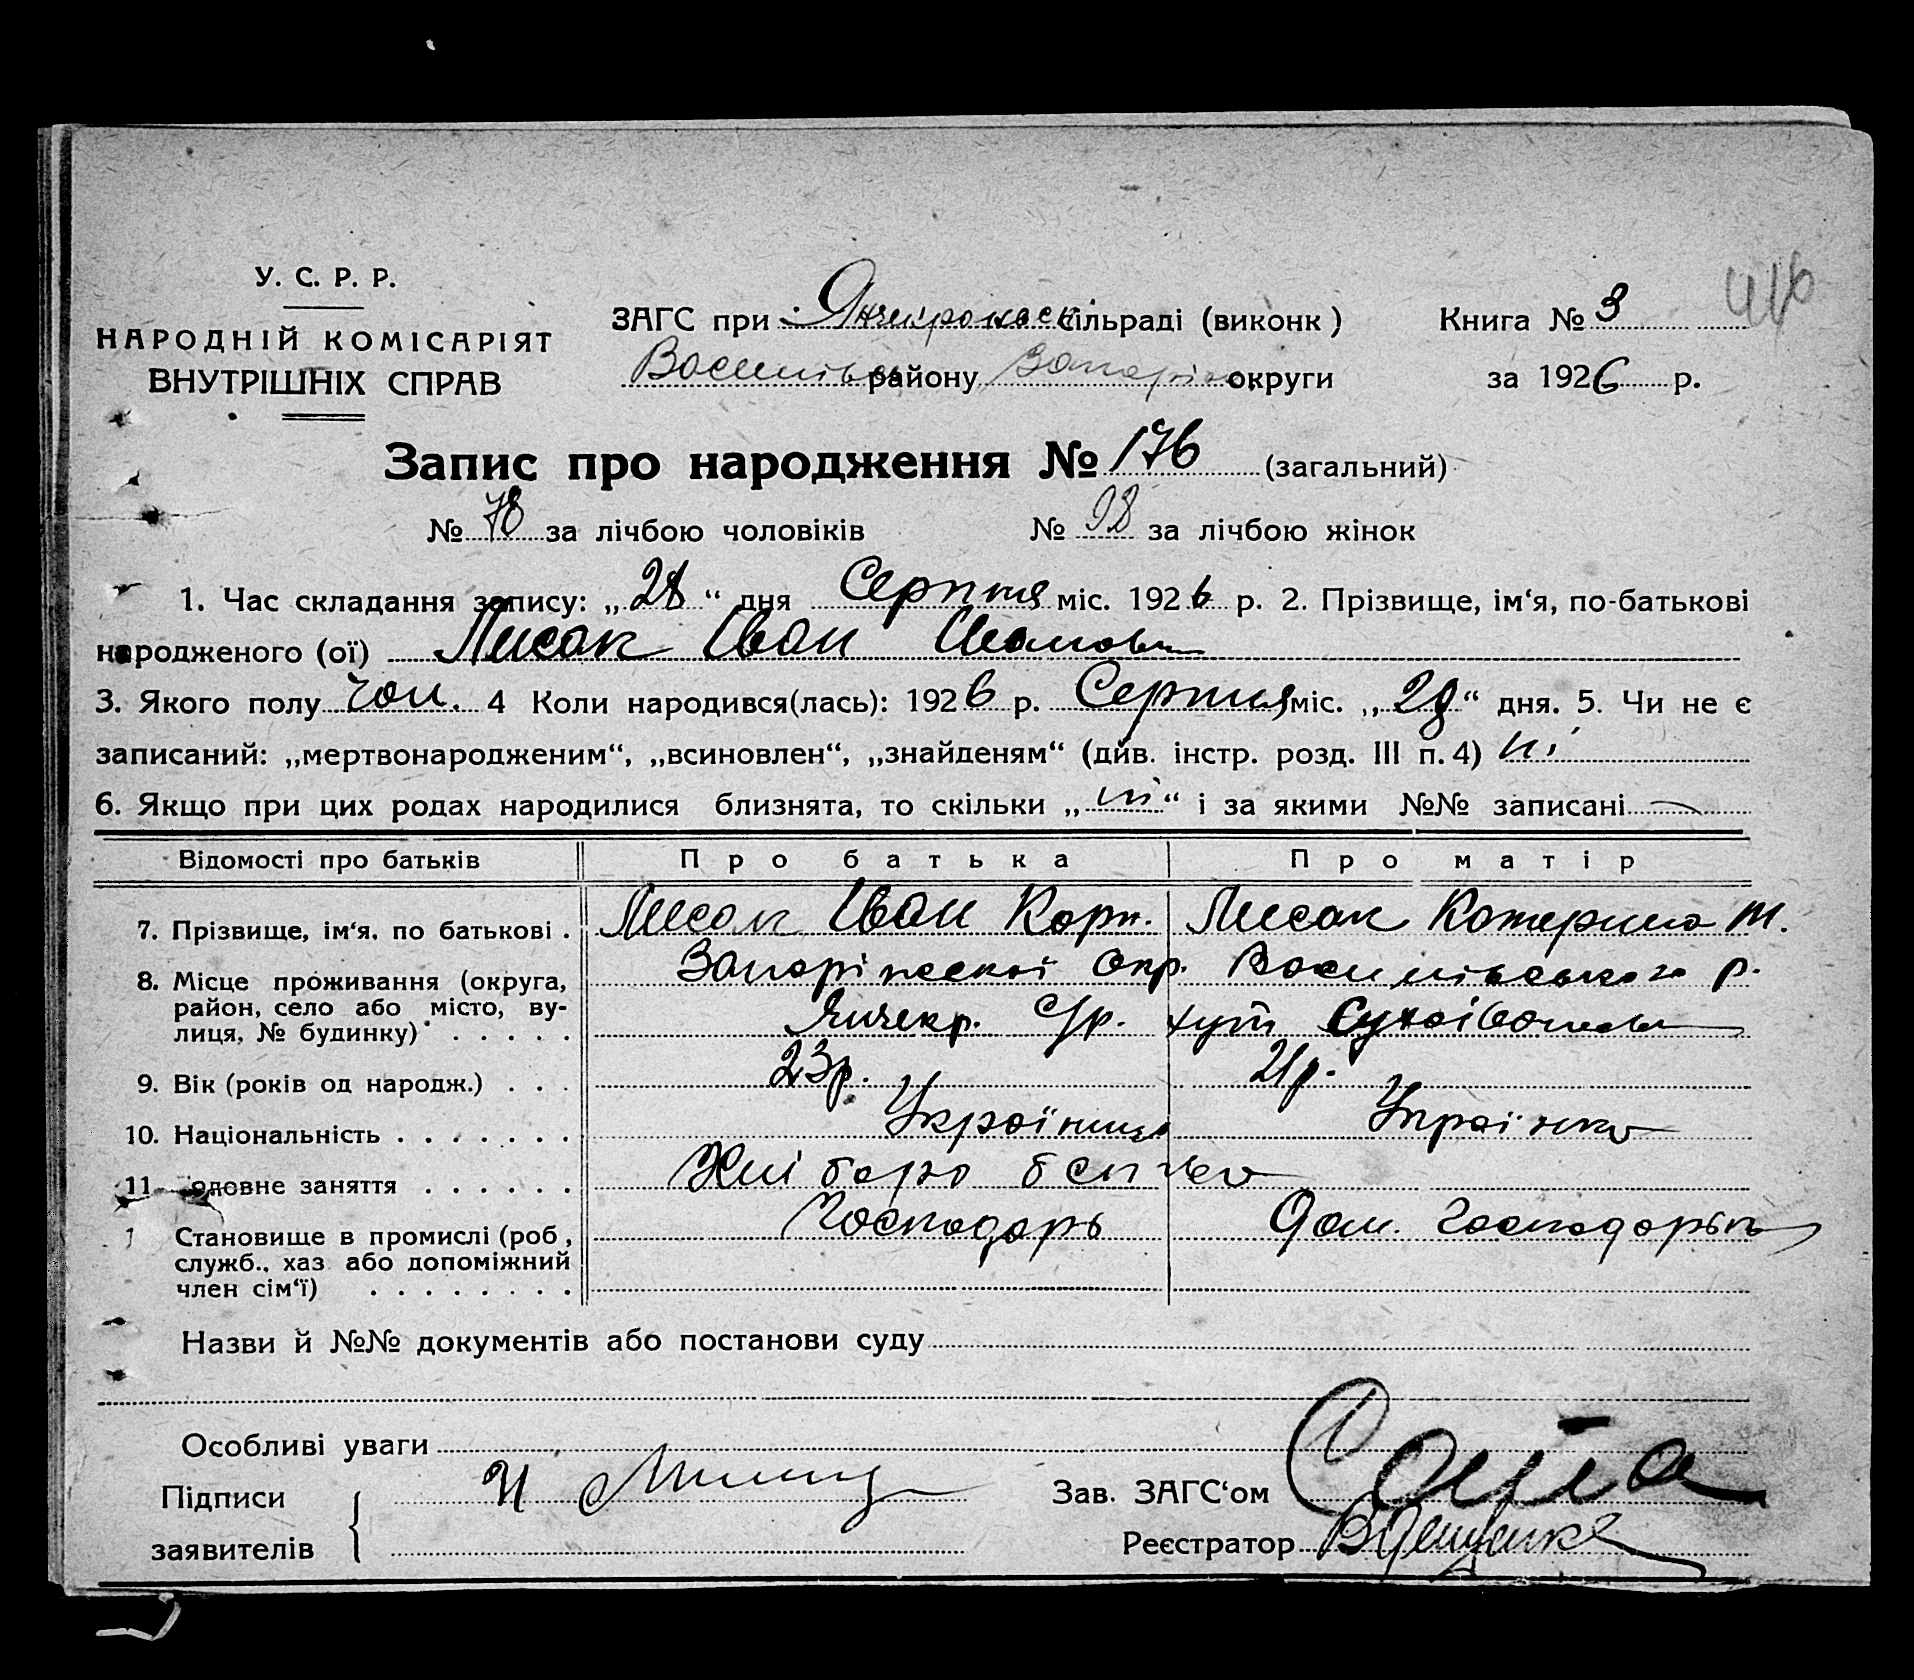 У. С. Р. Р.
НАРОДНІЙ КОМІСАРІЯТ
ВНУТРІШНІХ СПРАВ
ЗАГС при Янчекракськ сільраді (виконк)
Василівськ району Запоріж округи
Книга № 3
за 1926 р.
Запис про народження № 176 (загальний)
№ 78 за лічбою чоловіків № 98 за лічбою жінок
1. Час складання запису: „28“ дня Серпня міс. 1926 р. 2. Прізвище, ім‘я, по-батькові
народженого (ої) Лисак Іван Іванович
3. Якого полу чол. 4 Коли народився(лась): 1926 р. Серпня міс. „28“ дня. 5. Чи не є
записаний: „мертвонародженим“, „всиновлен“, „знайденям“ (див. інстр. розд. III п. 4) ні
6. Якщо при цих родах народилися близнята, то скільки „ні“ і за якими №№ записані —
Відомості про батьків Про батька Про матір
7. Прізвище, ім‘я, по батькові . Лисак Іван Корн. Лисак Катерина Т.
8. Місце проживання (округа, Запоріжської Окр. Василівського р.
район, село або місто, ву- Янчекр. С/р. хут
лиця, № будинку) . . . . .
9. Вік (років од народж.) . . . 23р. 21р.
10. Національність . . . . . . . Українець Українка
11 заняття . . . . . . Хліборобство
Становище в промислі (роб, Господарь Дом. Господарка
служб., хаз або допоміжний
член сім‘ї) . . . . . . . .
Назви й №№ документів або постанови суду
Особливі уваги
Підписи
заявителів
Зав. ЗАГС‘ом
Реєстратор